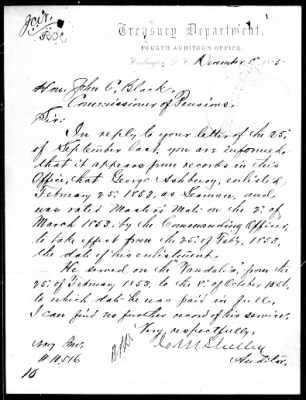 Treasury Department,
FOURTH AUDITOR'S OFFICE.
Washington, D. C. November 5" 1885
Hon. John C. Black,
Commissioner of Pensions,
Sir:
In reply to your letter of the 25"
of September last, you are informed
that it appears from records in this
Office, that George Ashbury, enlisted
February 25" 1853, as Seaman, and
was rated Master's Mate on the 2" of
March 1853, by the Commanding Officer,
to take effect from the 25" of Feb'y, 1853,
the date of his enlistment.
He served on the "Vandalia", from the
25" of February 1853, to the 1" of October 1856,
to which date he was paid in full.
I can find no further record of his service.
Very respectfully,
Shelley
Auditor.
Navy Inv.
10